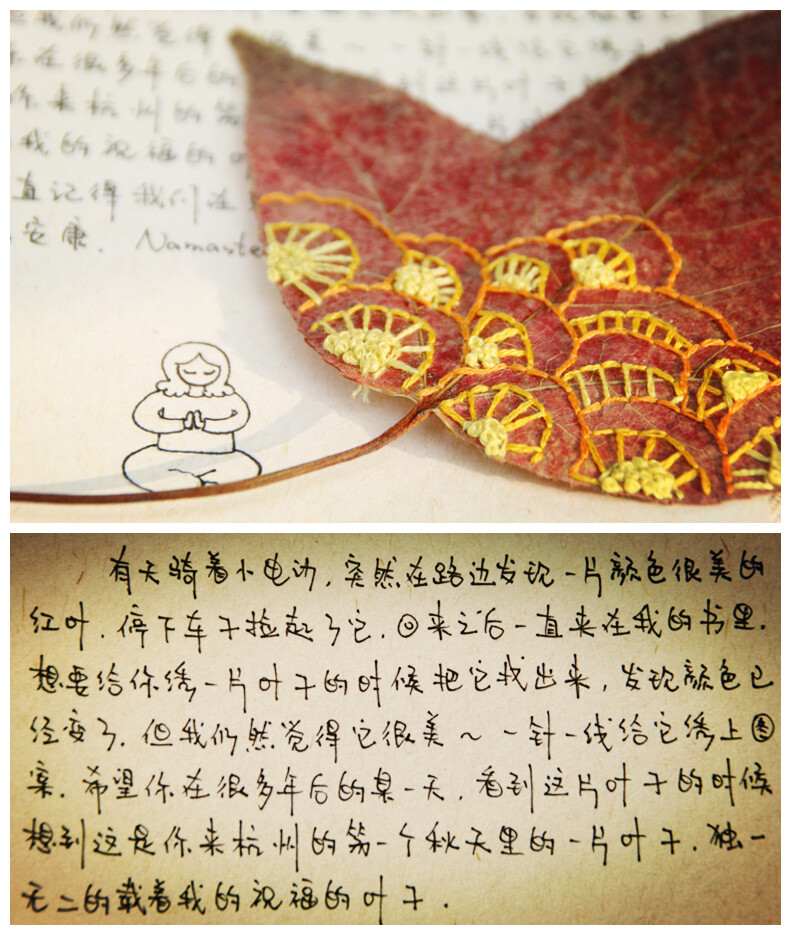 仍然觉得
在很多年后的
你来杭州的第
我的祝福的
直记得我们在
安康. Namaste
有天骑着小电动,突然在路边发现一片颜色很美的
红叶.停下车子捡起了它.回来之后一直夹在我的书里.
想要给你绣一片叶子的时候把它找出来,发现颜色已
经变了.但我仍然觉得它很美~一针一线给它绣上图
案.希望你在很多年后的某一天.看到这片叶子的时候
想到这是你来杭州的第一个秋天里的一片叶子.独一
无二的载着我的祝福的叶子.